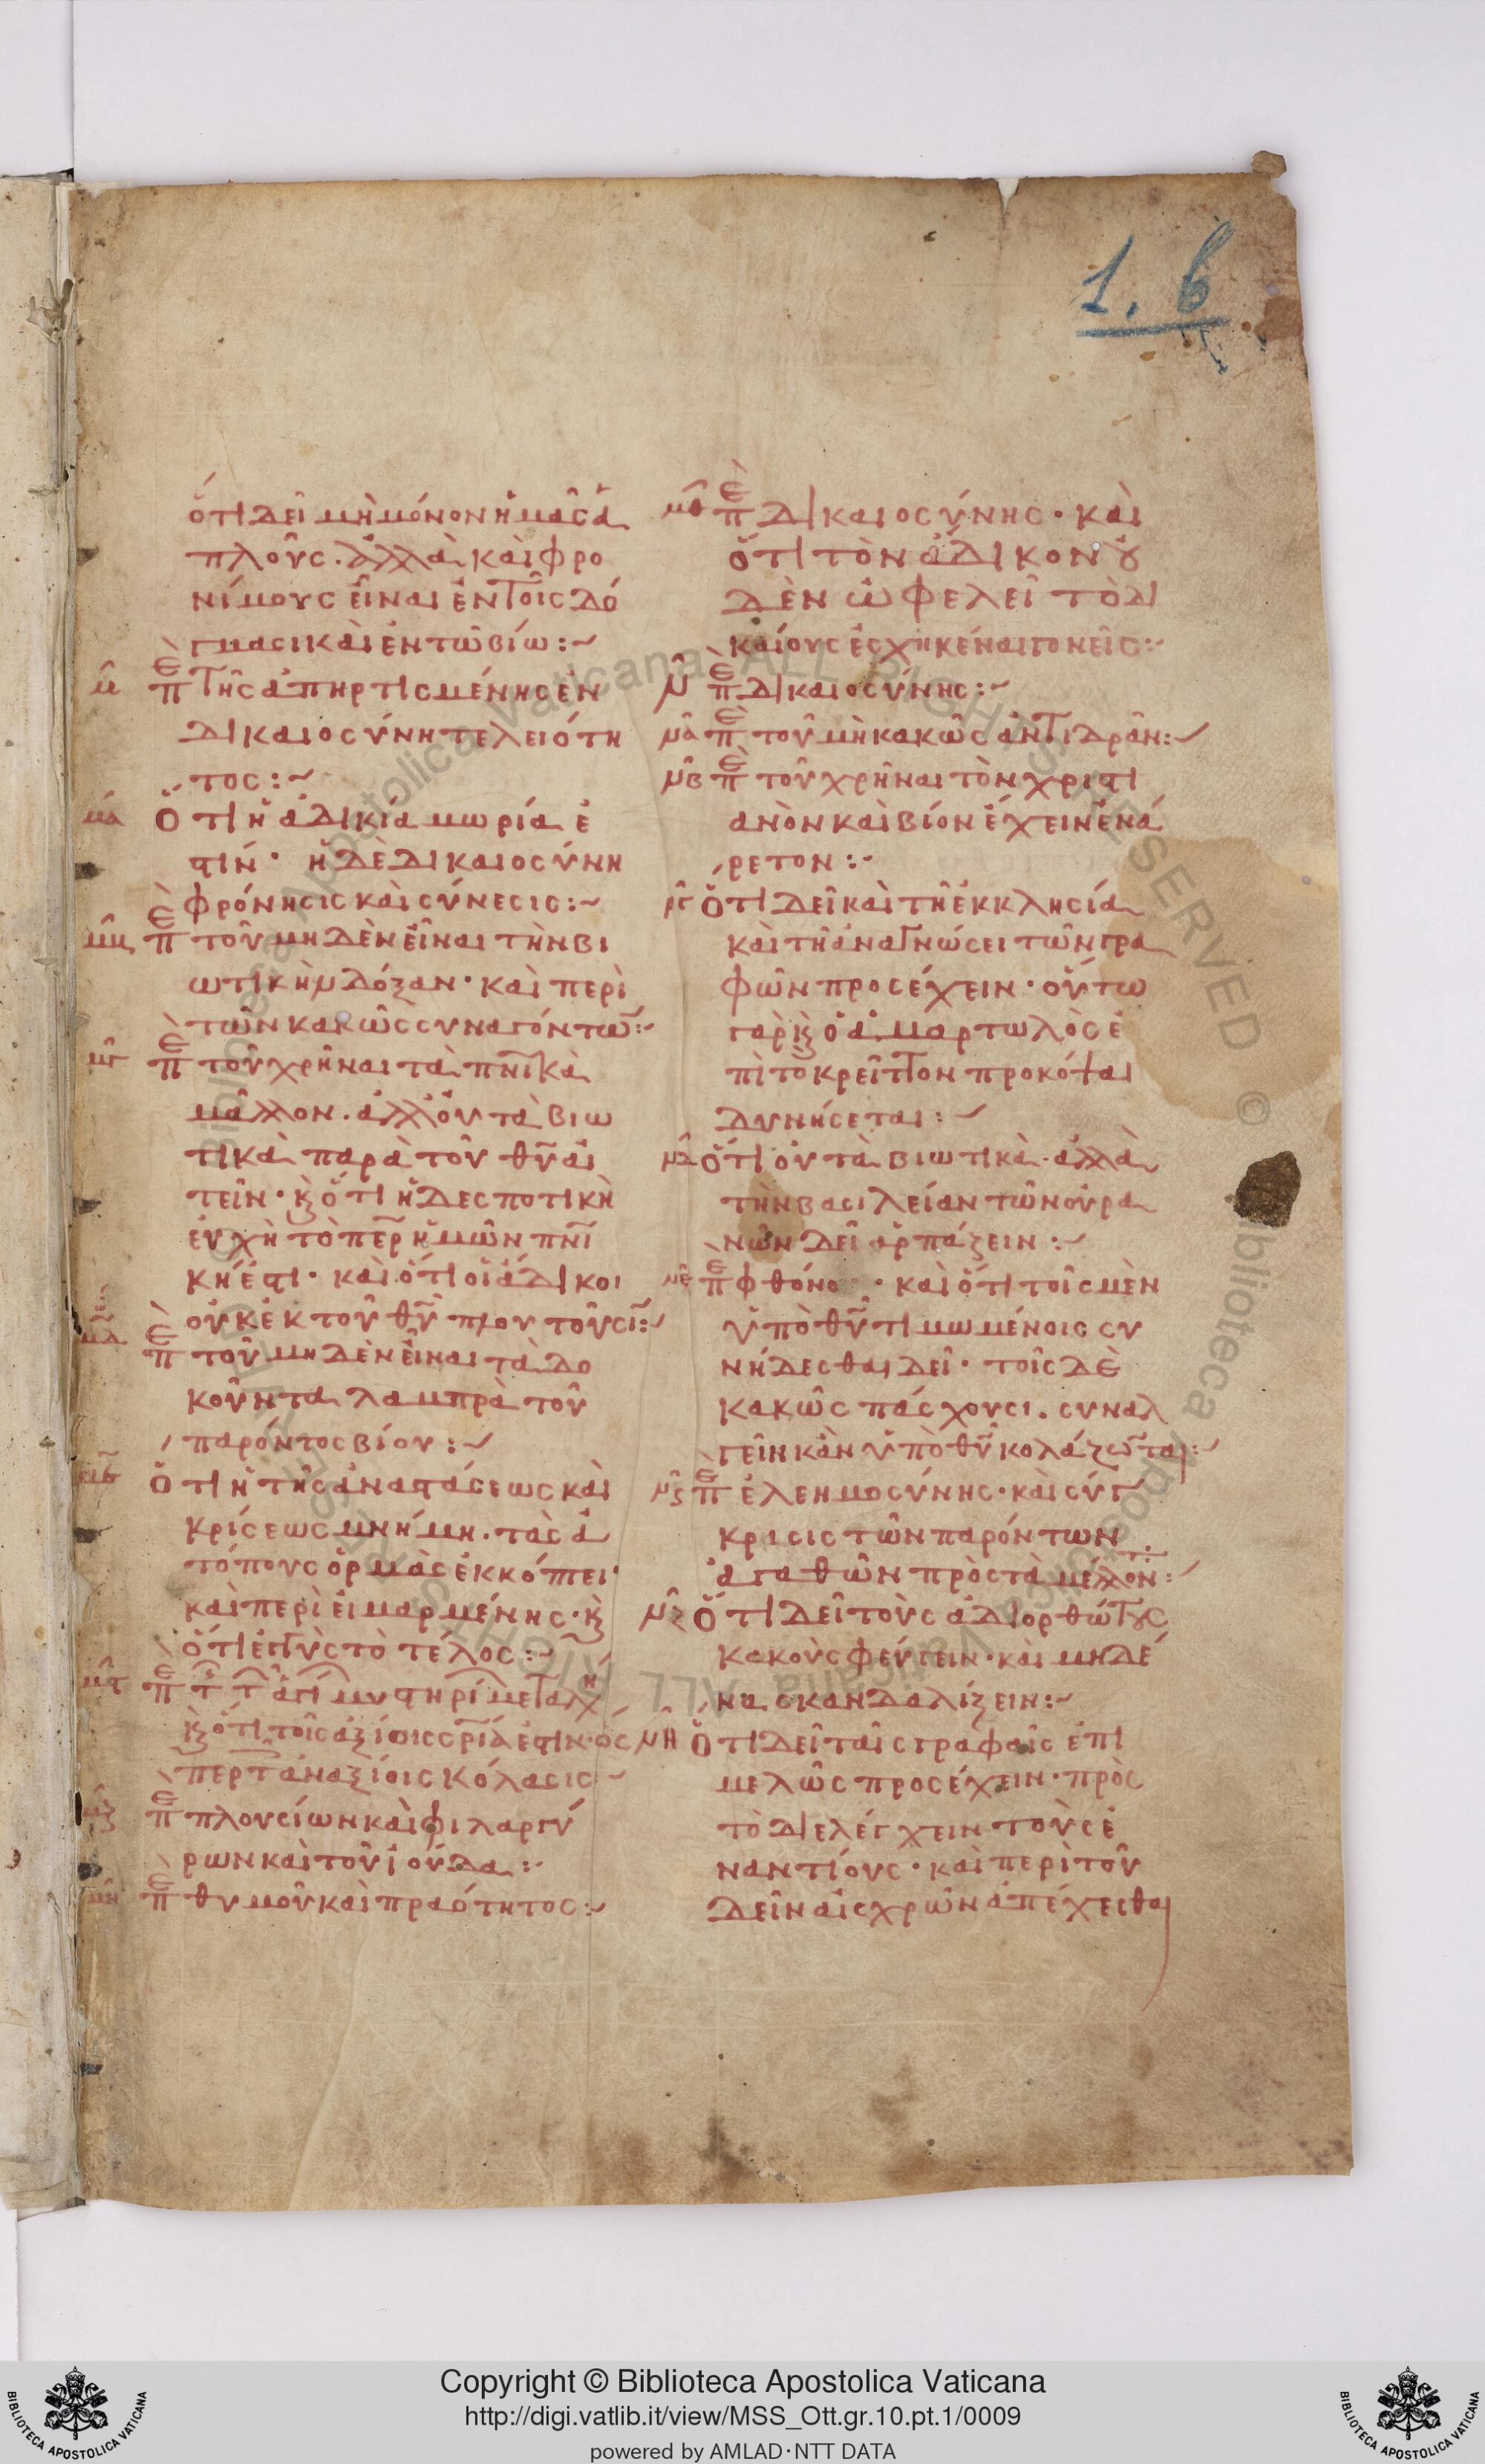 1. 6
ὅτι δεῖ μὴ μόνον ἡμᾶς ἁ
πλοῦς. ἀλλὰ καὶ φρο
νίμους εἶναι ἐν τοῖς δό
γμασι καὶ ἐν τῶ βίω:~
μ πε τῆς ἀπηρτισμένης ἐν
δικαιοσύνη τελειότη
τος:~
μα Ὅτι ἡ ἀδικία μωρία ἐ
στίν· ἡ δὲ δικαιοσύνη
φρόνησις καὶ σύνεσις:~
πε τοῦ μηδὲν εἶναι τὴν βι
ωτικὴν δόξαν· καὶ περὶ
τῶν κακῶς συναγόντω̄:~
πε τοῦ χρῆναι τὰ πνῑκὰ
μᾶλλον. ἀλλ' οὐ τὰ βιω
τικὰ παρὰ τοῦ θῡ αἰ
τεῖν· κ̣ ὅτι ἡ δεσποτικὴ
εὐχὴ τὸ πε̄ρ ἡμῶν πνῑ
κή ἐστι· καὶ ὅτι οἱ ἄδικοι
οὐκ ἐκ τοῦ θῡ πλουτοῦσῑ:~
πε τοῦ μηδὲν εἶναι τὰ δο
κοῦντα λαμπρὰ τοῦ
παρόντος βίου:~
Ὅτι ἡ τῆς ἀναστάσεως καὶ
κρίσεως μνήμη. τὰς ἀ
τόπους ὁρμὰς ἐκκόπτει·
καὶ περὶ εἱμαρμένης· κ̣
ὅτι ἐγγὺς τὸ τέλος:~
κ̣ ὅτι τοῖς ἀξίοις σ̄ρία ἐστὶν·
ἀναξίοις κόλασις:~
πε πλουσίων καὶ φιλαργύ
ρων καὶ τοῦ ἰούδα:~
πε θυμοῦ καὶ πραότητος:~
μθ πε δικαιοσύνης· καὶ
ὅτι τὸν ἄδικον οὐ
δὲν ὠφελεῖ τὸ δι
καίους ἐσχηκέναι γονεῖς:~
μ πε δικαιοσύνης:~
μα πε τοῦ μὴ κακῶς ἀντιδρᾶν:~
μβ πε τοῦ χρῆναι τὸν χριστι
ανὸν καὶ βίον ἔχειν ἐνά
ρετον:~
Ὅτι δεῖ καὶ τῆ ἐκκλησία
καὶ τῆ ἀναγνώσει τῶν γρα
φῶν προσέχειν· οὕτω
γὰρ κ̣ ὁ ἁμαρτωλὸς ἐ
πὶ τὸ κρεῖττον προκόψαι
δυνήσεται:~
μδ Ὅτι οὐ τὰ βιωτικὰ. ἀλλὰ
τὴν βασιλείαν τῶν οὐρα
νῶν δεῖ ἁρπάζειν:~
με πε φθόνο · καὶ ὅτι τοῖς μὲν
ὑπὸ θῡ τιμωμένοις συ
νήδεσθαι δεῖ· τοῖς δὲ
κακῶς πάσχουσι. συναλ
γεῖν κἂν ὑπὸ θῡ κολάζω̄ται:~
μς πε ἐλεημοσύνης· καὶ σύγ
κρισις τῶν παρόντων
ἀγαθῶν πρὸς τὰ μέλλον:~
μζ Ὅτι δεῖ τοὺς ἀδιορθώτους
κακοὺς φεύγειν· καὶ μηδέ
να σκανδαλίζειν:~
μη Ὅτι δεῖ ταῖς γραφαῖς ἐπι
μελῶς προσέχειν· πρὸς
τὸ διελέγχειν τοὺς ἐ
ναντίους· καὶ περὶ τοῦ
δεῖν αἰσχρῶν ἀπέχεσθαι
Copyright © Biblioteca Apostolica Vaticana
http://digi.vatlib.it/view/MSS_Ott.gr.10.pt.1/0009
powered by AMLAD·NTT DATA
BIBLIOTECA APOSTOLICA VATICANA
BIBLIOTECA APOSTOLICA VATICANA